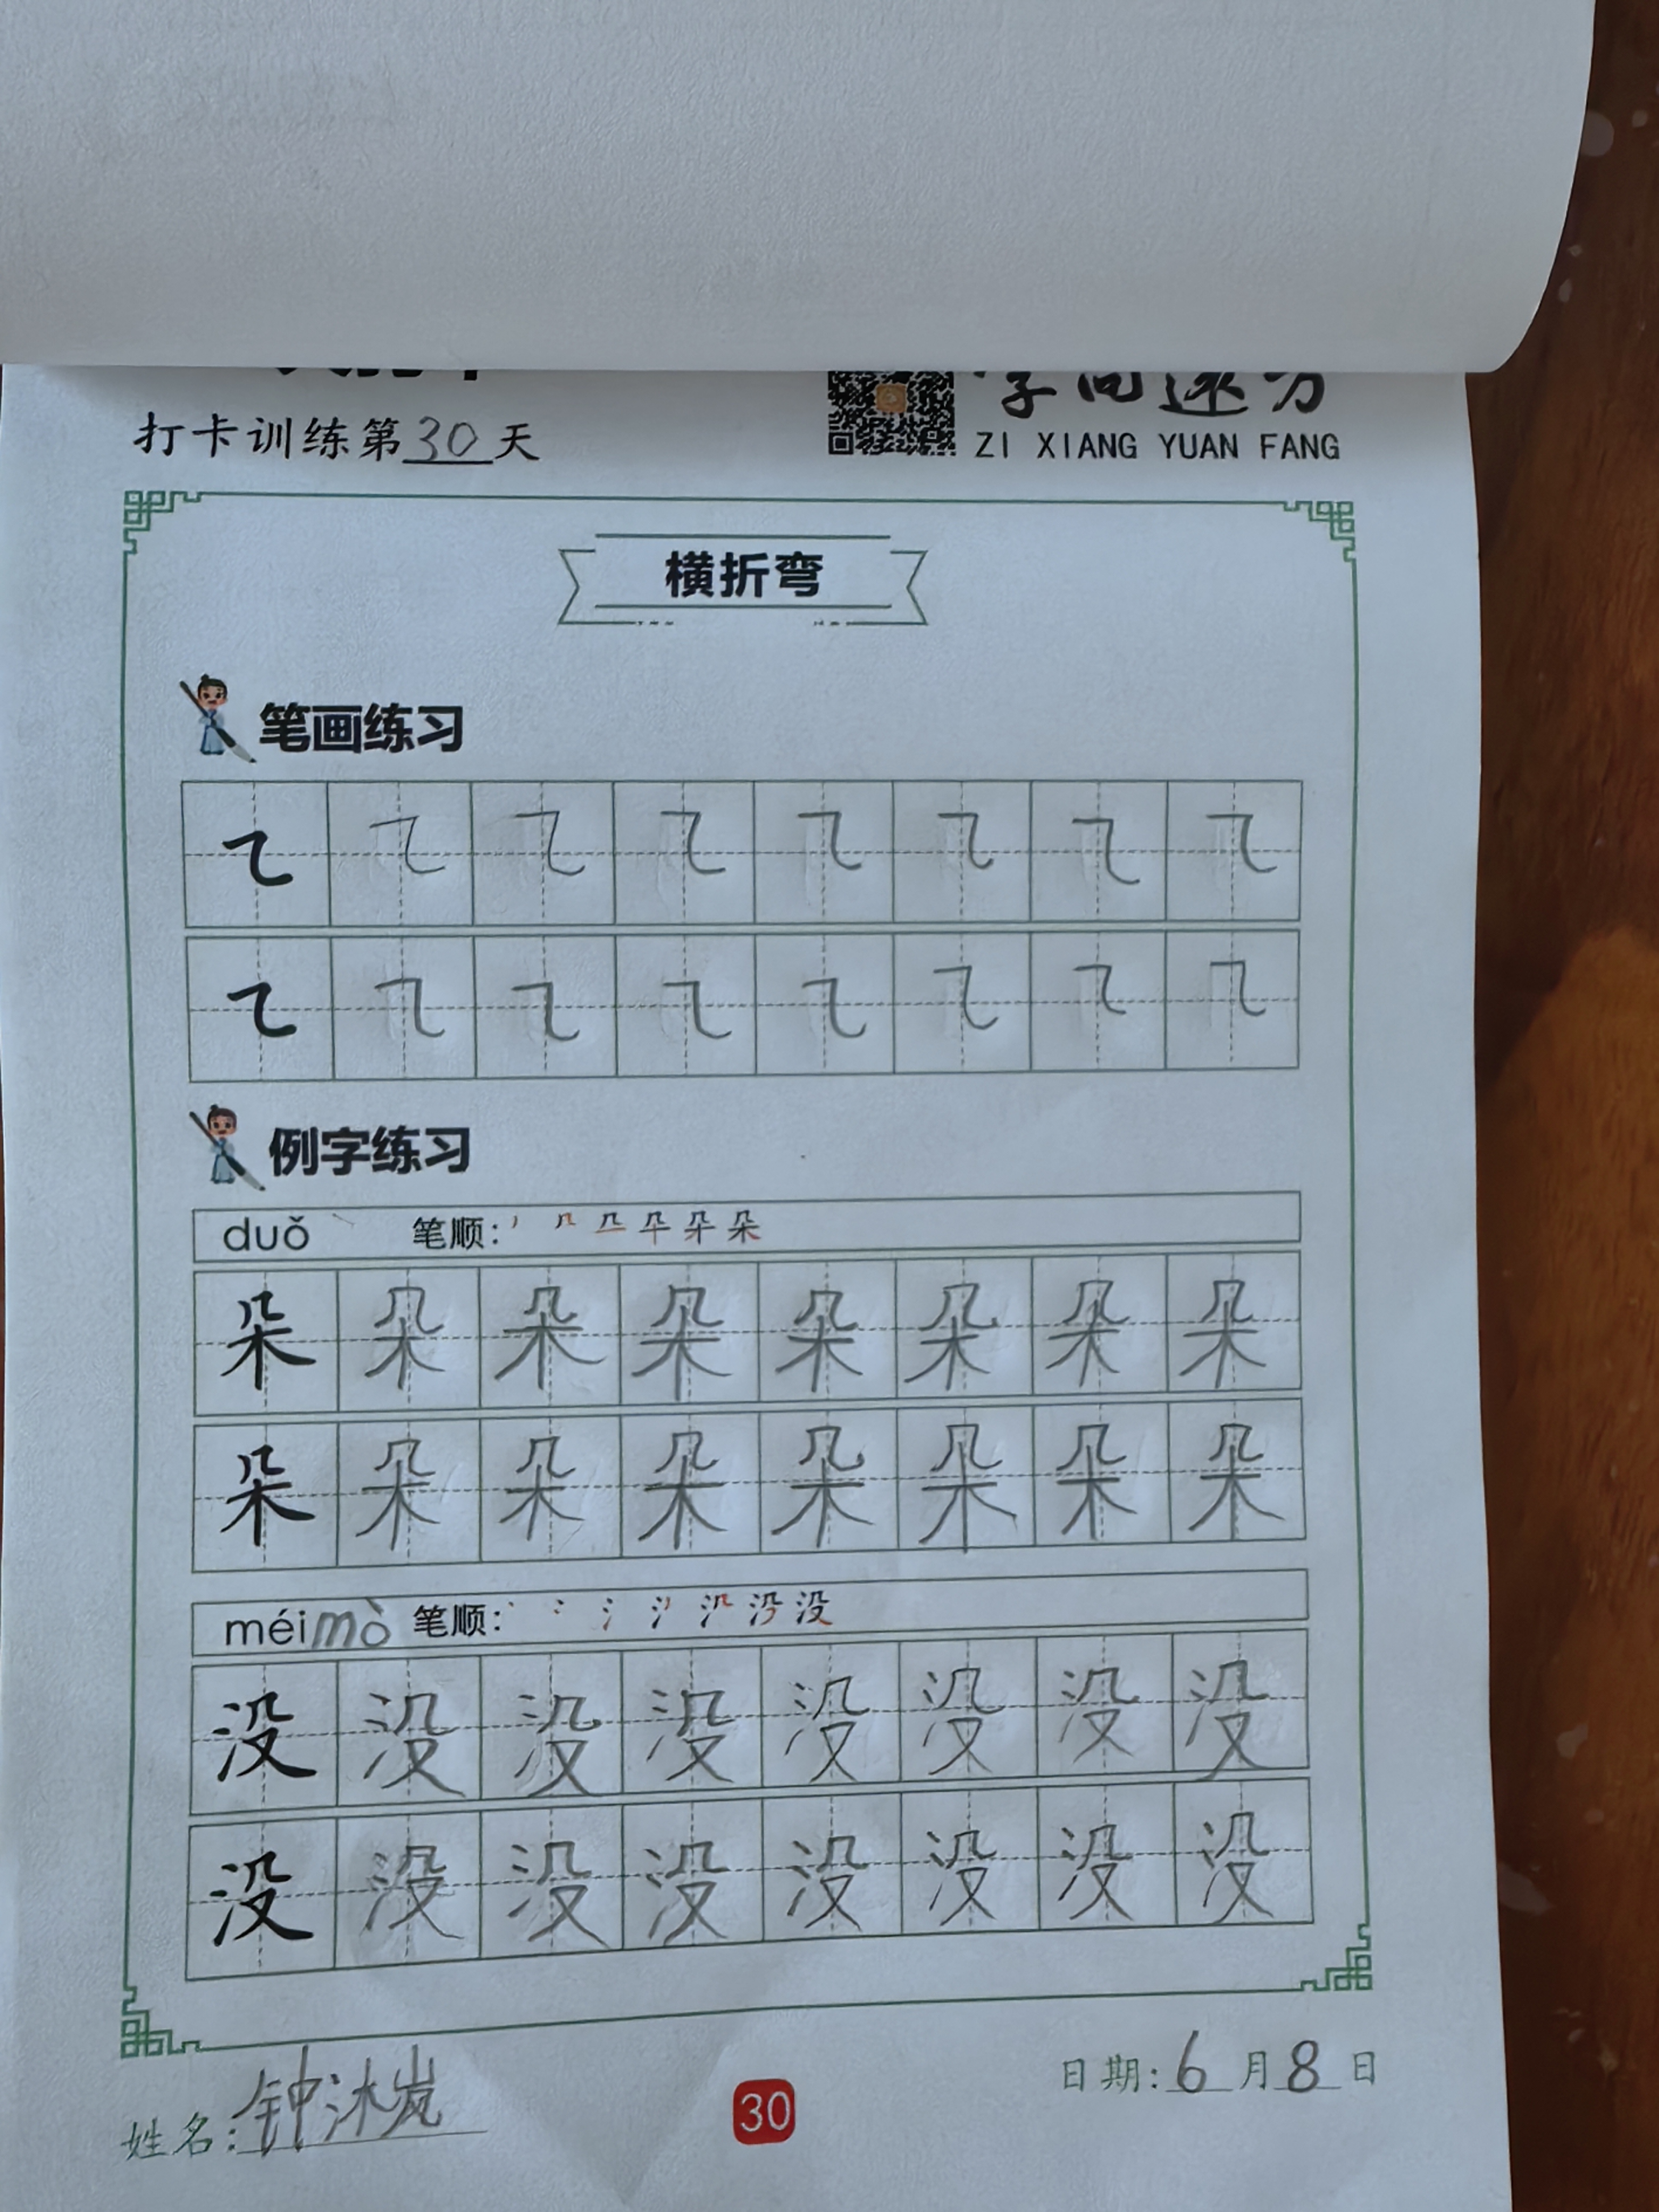 字向远方
打卡训练第30天
ZI XIANG YUAN FANG
横折弯
笔画练习
例字练习
duǒ 笔顺:
朵 朵 朵 朵 朵 朵 朵 朵
朵 朵 朵 朵 朵 朵 朵 朵
méi mò 笔顺:
没 没 没 没 没 没 没 没
没 没 没 没 没 没 没 没
姓名:钟沐岚
30
日期:6月8日